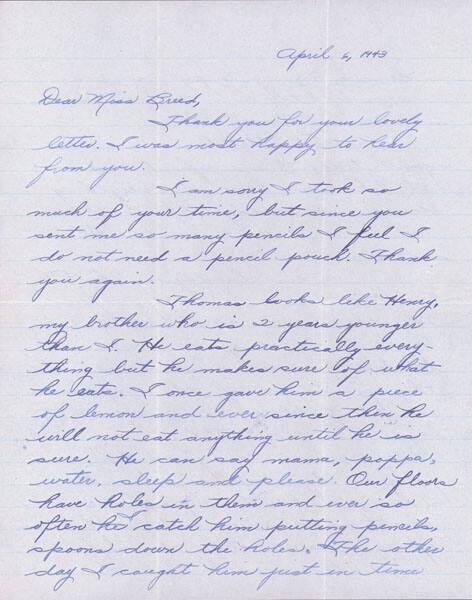 April 6, 1943
Dear Miss Breed,
Thank you for your lovely
letter. I was most happy to hear
from you.
I am sorry I took so
much of your time, but since you
sent me so many pencils I feel I
do not need a pencil pouch. Thank
you again.
Thomas looks like Henry,
my brother who is 2 years younger
than I. He eats practically every-
thing but he makes sure of what
he eats. I once gave him a piece
of lemon and ever since then he
will not eat anything until he is
sure. He can say mama, poppa,
water, sleep and please. Our floors
have holes in them and ever so
often we catch him putting pencils,
spoons down the holes. The other
day I caught him just in time